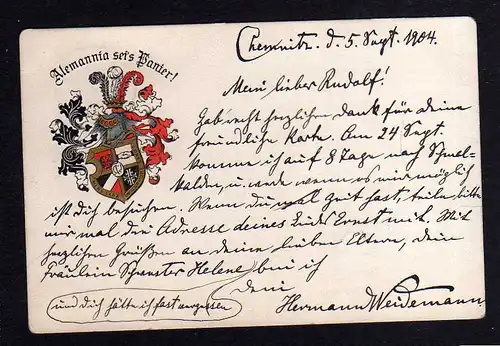 Alemannia sei's Panier!
Chemnitz. d. 5. Sept. 1904.
Mein lieber Rudolf!
Hab recht herzlichen Dank für deine
freundliche Karte. Am 24 Sept.
komme ich auf 8 Tage nach Schmal-
kalden, u. werde wenn es mir möglich
ist dich besuchen. Wenn du mal Zeit hast, teile bitte
mir mal die Adresse deines Ernst mit. Mit
herzlichen Grüßen an deine lieben Eltern, dein
Fräulein Schwester Helene bin ich
und dich hätte ich fast vergessen
dein
Hermann Weidemann